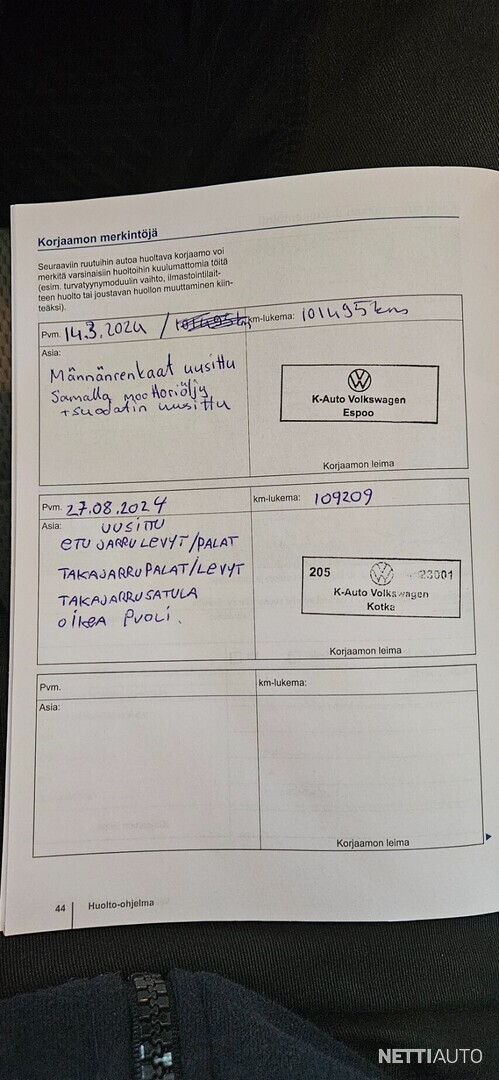 Korjaamon merkintöjä
Seuraaviin ruutuihin autoa huoltava korjaamo voi
merkitä varsinaisiin huoltoihin kuulumattomia töitä
(esim. turvatyynymoduulin vaihto, ilmastointilait-
teen huolto tai joustavan huollon muuttaminen kiin-
teäksi).
Pvm. 14.3.2024 / km-lukema: 101495km
Asia:
Männänrenkaat uusittu
Samalla moottoriöljy
+suodatin uusittu
K-Auto Volkswagen
Espoo
Korjaamon leima
Pvm. 27.08.2024 km-lukema: 109209
Asia: UUSITTU
ETU JARRULEVYT/PALAT
TAKAJARRUPALAT/LEVYT
TAKAJARRUSATULA
OIKEA PUOLI.
205 23001
K-Auto Volkswagen
Kotka
Korjaamon leima
Pvm. km-lukema:
Asia:
Korjaamon leima
44 Huolto-ohjelma
NETTIAUTO